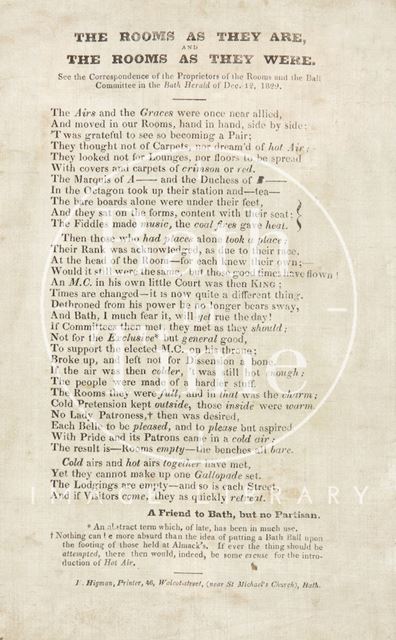 THE ROOMS AS THEY ARE,
AND
THE ROOMS AS THEY WERE.
See the Correspondence of the Proprietors of the Rooms and the Ball
Committee in the Bath Herald of Dec. 12, 1829.
The Airs and the Graces were once near allied,
And moved in our Rooms, hand in hand, side by side;
'T was grateful to see so becoming a Pair;
They thought not of Carpets, nor dream'd of hot Air;
They looked not for Lounges, nor floors to be spread
With covers and carpets of crimson or red.
The Marquis of A—— and the Duchess of B——
In the Octagon took up their station and—tea—
The bare boards alone were under their feet,
And they sat on the forms, content with their seat;
The Fiddles made music, the coal fires gave heat.
Then those who had places alone took a place;
Their Rank was acknowledged, as due to their race.
At the head of the Room—for each knew their own;—
Would it still were the same, but those good times have flown!
An M.C. in his own little Court was then KING;
Times are changed—it is now quite a different thing.
Dethroned from his power he no longer bears sway,
And Bath, I much fear it, will yet rue the day!
If Committees then met, they met as they should;
Not for the Exclusive* but general good,
To support the elected M.C. on his throne;
Broke up, and left not for Dissension a bone.
If the air was then colder, 't was still hot enough;
The people were made of a hardier stuff.
The Rooms they were full, and in that was the charm;
Cold Pretension kept outside, those inside were warm.
No Lady Patroness,† then was desired,
Each Belle to be pleased, and to please but aspired
With Pride and its Patrons came in a cold air;
The result is—Rooms empty—the benches all bare.
Cold airs and hot airs together have met,
Yet they cannot make up one Gallopade set.
The Lodgings are empty—and so is each Street,
And if Visitors come, they as quickly retreat.
A Friend to Bath, but no Partisan.
* An abstract term which, of late, has been in much use.
† Nothing can be more absurd than the idea of putting a Bath Ball upon
the footing of those held at Almack's. If ever the thing should be
attempted, there then would, indeed, be some excuse for the intro-
duction of Hot Air.
Higman, Printer, 46, Walcot-street, (near St Michael's Church), Bath.